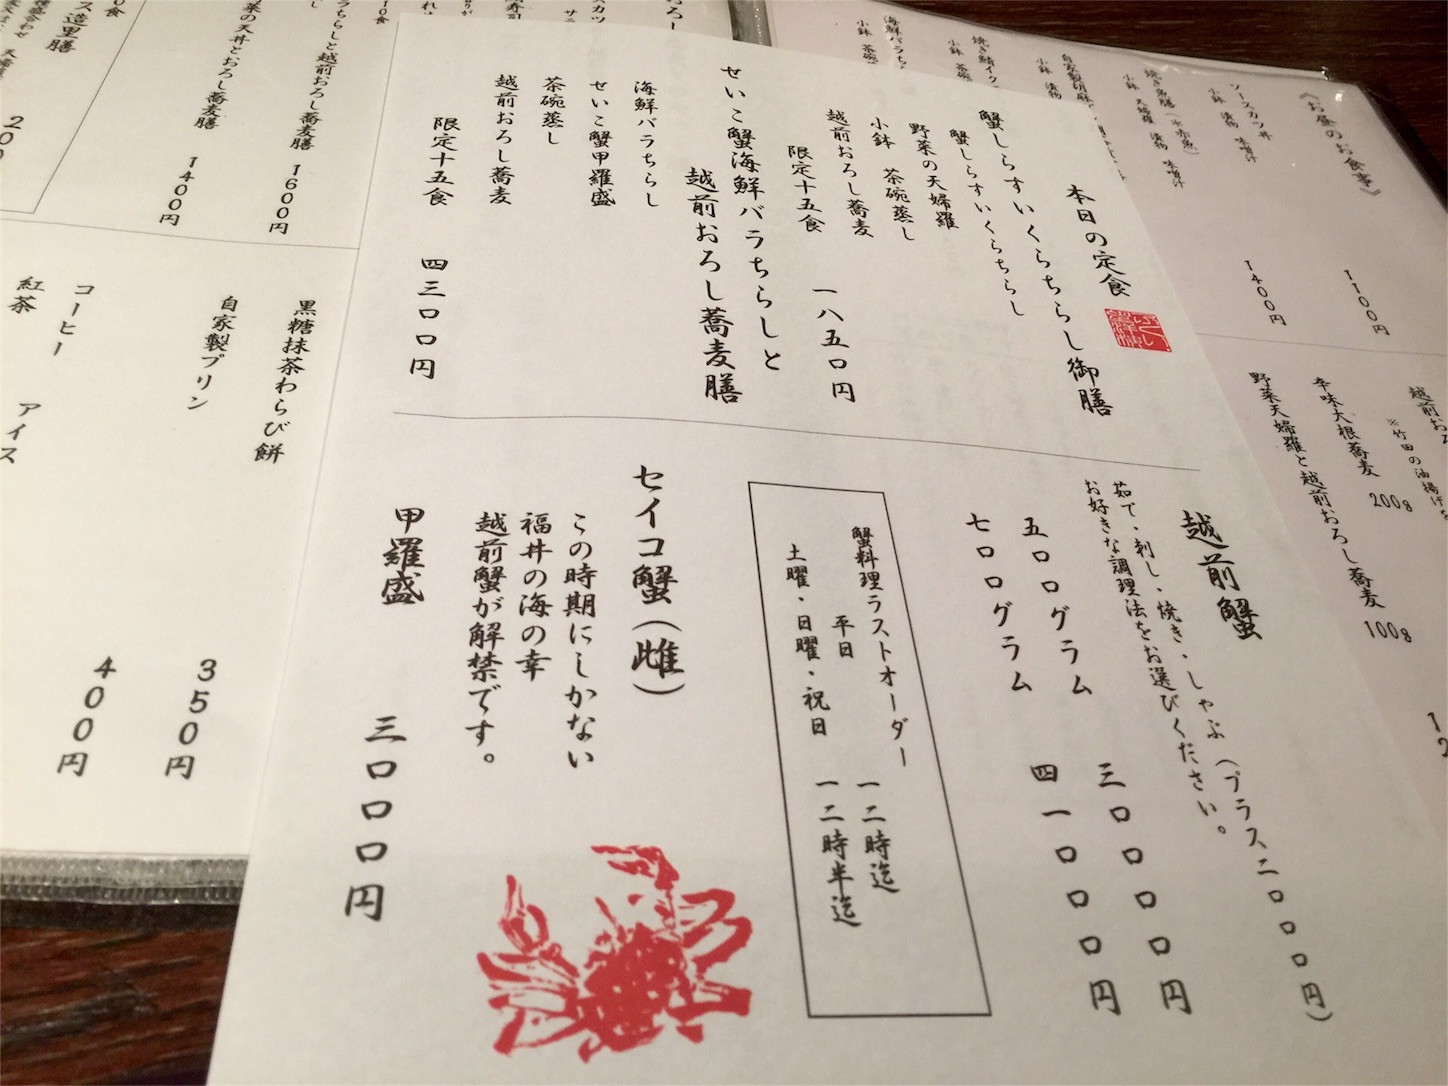 本日の定食
蟹しらすいくらちらし御膳
蟹しらすいくらちらし
野菜の天婦羅
小鉢　茶碗蒸し
越前おろし蕎麦
限定十五食　一八五〇円
せいこ蟹海鮮バラちらしと
越前おろし蕎麦膳
海鮮バラちらし
せいこ蟹甲羅盛
茶碗蒸し
越前おろし蕎麦
限定十五食　四三〇〇円
越前蟹
茹で・刺し・焼き・しゃぶ（プラス二〇〇〇円）
お好きな調理法をお選びください。
五〇〇グラム　三〇〇〇〇円
七〇〇グラム　四一〇〇〇円
蟹料理ラストオーダー
平日　一二時迄
土曜・日曜・祝日　一二時半迄
セイコ蟹（雌）
この時期にしかない
福井の海の幸
越前蟹が解禁です。
甲羅盛　三〇〇〇円
《お昼のお食事》
ソースカツ丼　1100円
小鉢　漬物　味噌汁
焼き魚膳（　赤魚）　1400円
小鉢　天婦羅　漬物　味噌汁
自家製胡麻
小鉢　漬物
焼き鯖イク
小鉢　茶碗
海鮮バラち
小鉢　茶碗
越前お
※竹田の油揚げ
辛味大根蕎麦　200g
野菜天婦羅と越前おろし蕎麦　100g
ちらしと越前おろし蕎麦膳　1600円
菜の天丼とおろし蕎麦膳　1400円
ス造里膳
黒糖抹茶わらび餅
自家製プリン　350円
コーヒー　400円
紅茶　アイス